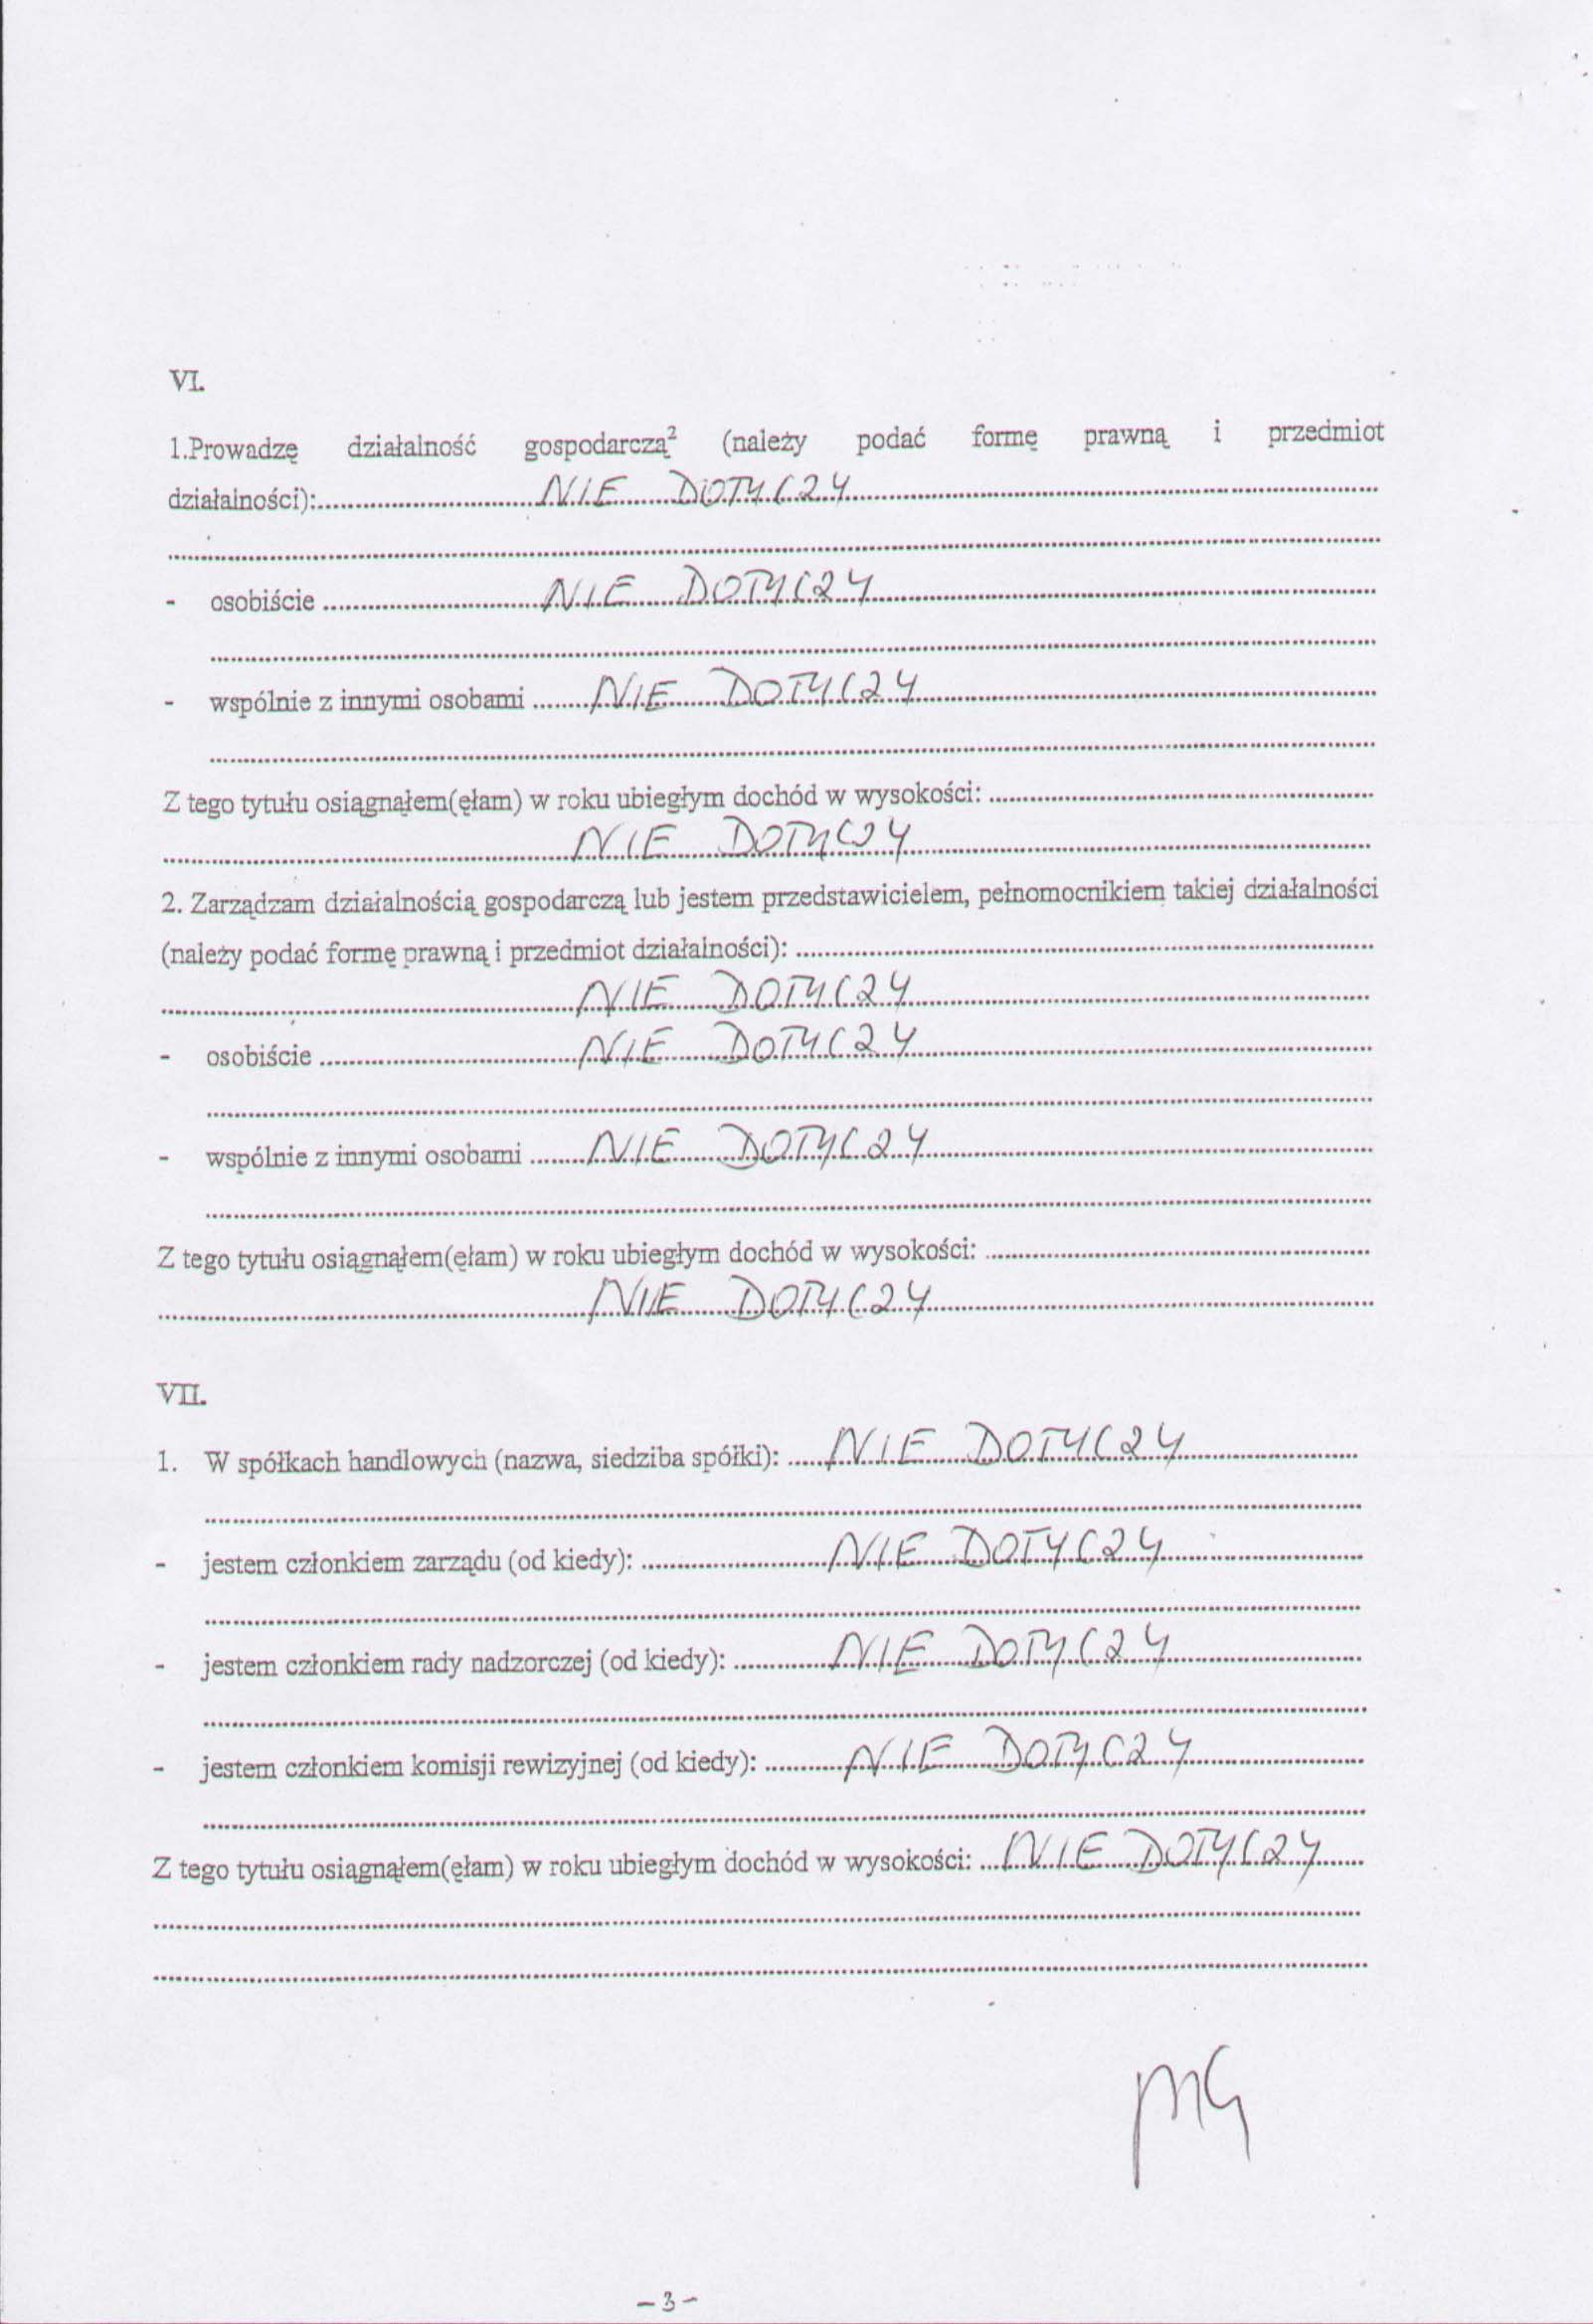 VI.
1.Prowadzę działalność gospodarczą² (należy podać formę prawną i przedmiot
działalności):..............NIE DOTYCZY..............
..............
- osobiście ..............NIE DOTYCZY..............
..............
- wspólnie z innymi osobami ..............NIE DOTYCZY..............
..............
Z tego tytułu osiągnąłem(ęłam) w roku ubiegłym dochód w wysokości: ..............
..............NIE DOTYCZY..............
2. Zarządzam działalnością gospodarczą lub jestem przedstawicielem, pełnomocnikiem takiej działalności
(należy podać formę prawną i przedmiot działalności): ..............
..............NIE DOTYCZY..............
- osobiście ..............NIE DOTYCZY..............
..............
- wspólnie z innymi osobami ..............NIE DOTYCZY..............
..............
Z tego tytułu osiągnąłem(ęłam) w roku ubiegłym dochód w wysokości: ..............
..............NIE DOTYCZY..............
VII.
1. W spółkach handlowych (nazwa, siedziba spółki): ..............NIE DOTYCZY..............
..............
- jestem członkiem zarządu (od kiedy): ..............NIE DOTYCZY..............
..............
- jestem członkiem rady nadzorczej (od kiedy): ..............NIE DOTYCZY..............
..............
- jestem członkiem komisji rewizyjnej (od kiedy): ..............NIE DOTYCZY..............
..............
Z tego tytułu osiągnąłem(ęłam) w roku ubiegłym dochód w wysokości: ..............NIE DOTYCZY..............
..............
..............
-3-